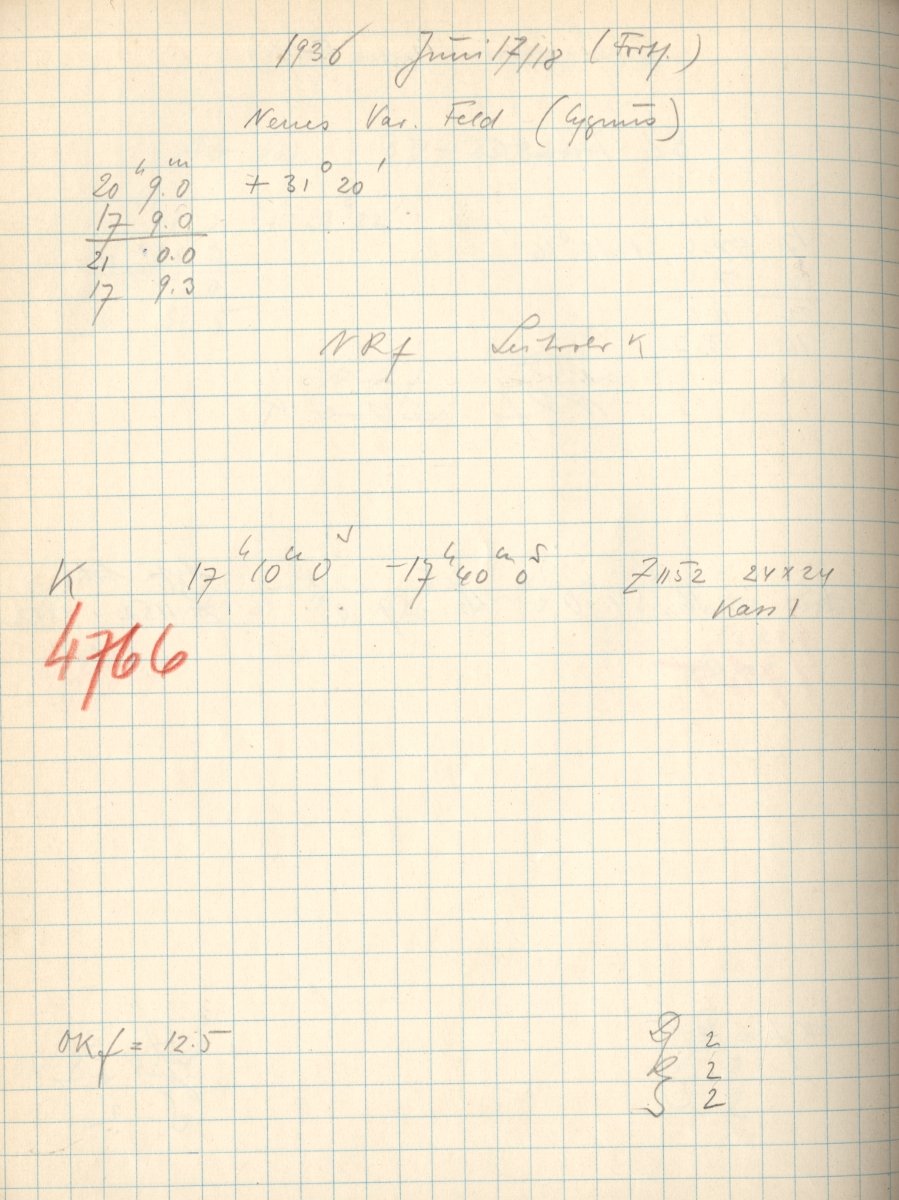 1936 Juni 17/18 (Forts.)
Neues Var. Feld (Cygnus)
20ʰ 9.0ᵐ + 31° 20'
17 9.0
21 0.0
17 9.3
NRf
K 17ʰ 10ᵐ 0ˢ - 17ʰ 40ᵐ 0ˢ Z 1152 24 x 24
Kass 1
4766
OKf = 12.5
D 2
R 2
S 2